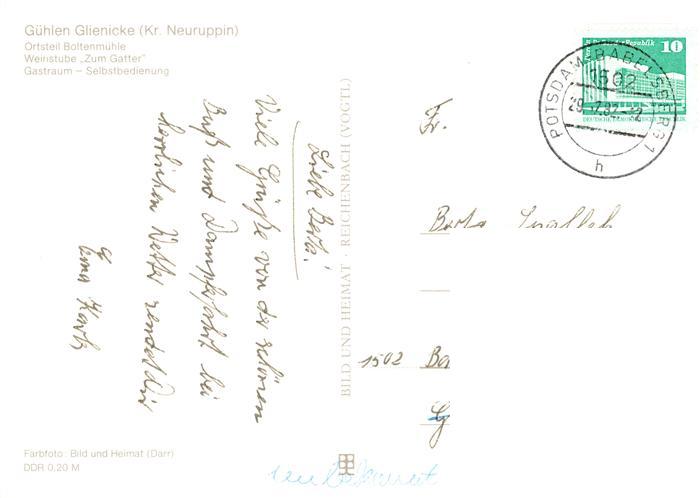 Gühlen Glienicke (Kr. Neuruppin)
Ortsteil Boltenmühle
Weinstube „Zum Gatter"
Gastraum – Selbstbedienung
Liebe Berta!
Viele Grüße von der schönen
Buß und Dampferfahrt bei
herrlichen Wetter sendet dir
Erna
BILD UND HEIMAT · REICHENBACH (VOGTL)
10
DEUTSCHE DEMOKRATISCHE REPUBLIK
POTSDAM-BABELSBERG 1
1502
h
Fr.
Berta
1502 Ba
unbekannt
Farbfoto: Bild und Heimat (Darr)
DDR 0,20 M